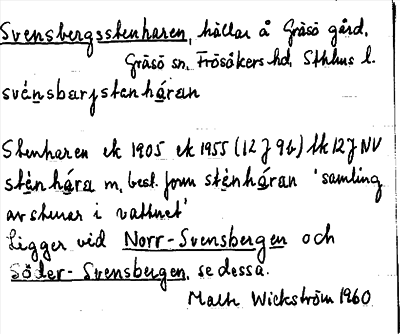 Svensbergsstenharen, hällar å Gräsö gård,
Gräsö sn, Frösåkers hd, Sthlms l.
svénsbarjstenháran
Stenharen ek 1905 ek 1955 (12 J 9b) tk 12 J NV
stènhára m, best. form stènháran 'samling
av stenar i vattnet'
Ligger vid Norr-Svensbergen och
Söder-Svensbergen, se dessa.
Wickström 1960